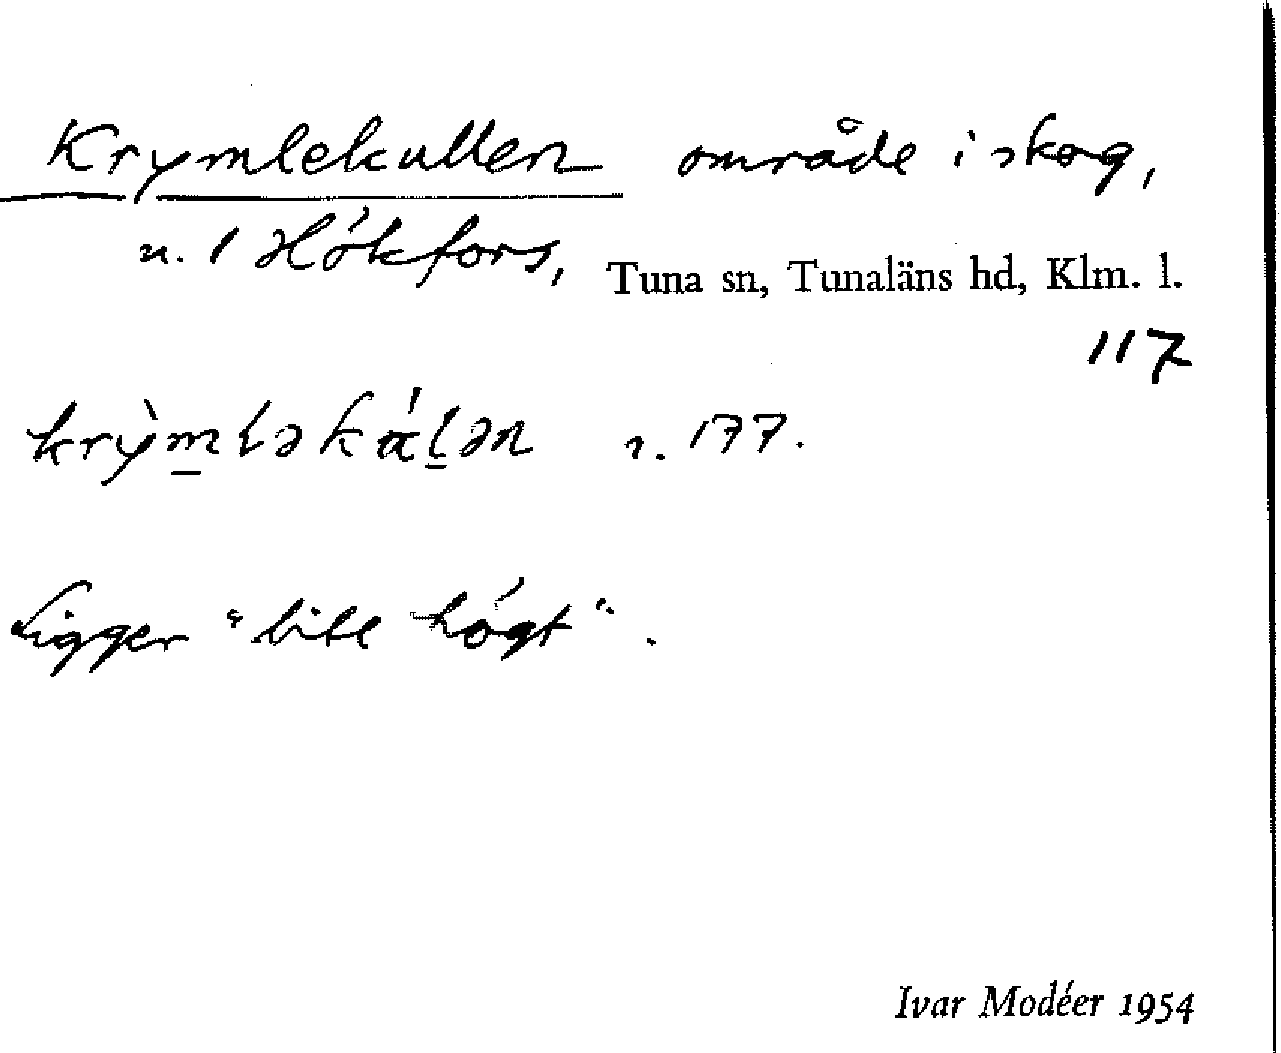 Krymlekullen område i skog,
u. 1 Hökfors, Tuna sn, Tunaläns hd, Klm. l.
117
s. 177.
Ligger "lite högt".
Ivar Modéer 1954